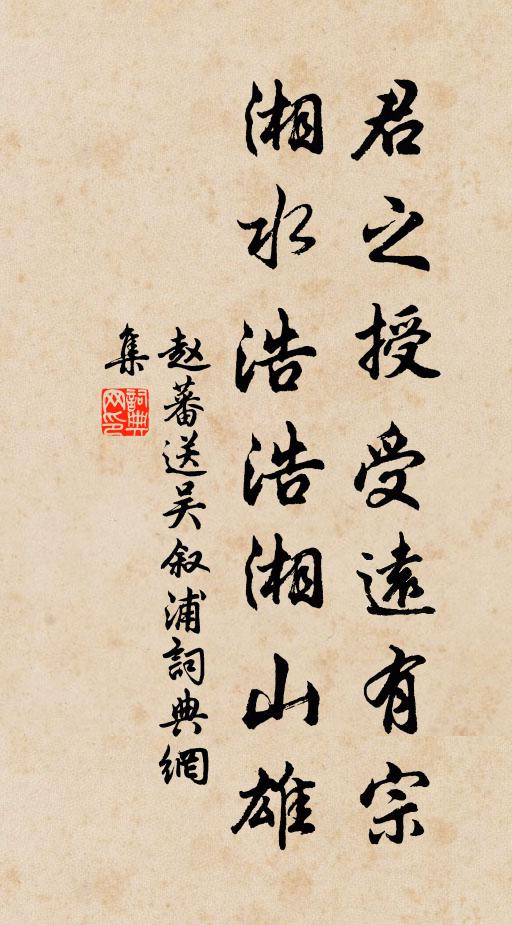 君之授受遠有宗
湘水浩浩湘山雄
赵蕃送吴叙浦詞典網
集
詞典网印